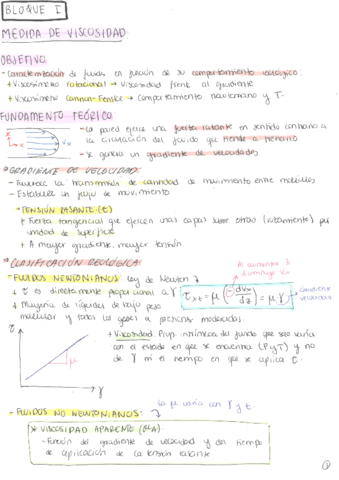 BLOQUE I
MEDIDA DE VISCOSIDAD
OBJETIVO
- Caracterización de fluidos en función de su comportamiento reológico.
+ Viscosímetro rotacional → Viscosidad frente al gradiente
+ Viscosímetro Cannon-Fenske → Comportamiento newtoniano y T.
FUNDAMENTO TEÓRICO
- La pared ejerce una fuerza rasante en sentido contrario a
la circulación del fluido que tiende a frenarlo
- se genera un gradiente de velocidades
GRADIENTE DE VELOCIDAD
- Favorece la transmisión de cantidad de movimiento entre moléculas
- Establece un flujo de movimiento
TENSIÓN RASANTE (τ)
+ Fuerza tangencial que ejercen unas capas sobre otras (rozamiento) por
unidad de superficie
+ A mayor gradiente, mayor tensión
CLASIFICACIÓN REOLÓGICA
Al aumentar z
disminuye Vx
- FLUIDOS NEWTONIANOS Ley de Newton
+ τ es directamente proporcional a γ
τxz = μ (- dvx / dz) = μ · γ
gradiente
velocidad
+ Mayoría de líquidos de bajo peso
molecular y todos los gases a presiones moderadas.
τ
+ Viscosidad Prop. intrínseca del fluido que solo varía
con el estado en que se encuentra (P y T) y no
de γ ni el tiempo en que se aplica τ.
μ
γ
la μ varía con γ y t.
- FLUIDOS NO NEWTONIANOS:
* VISCOSIDAD APARENTE (μA)
- Función del gradiente de velocidad y del tiempo
de aplicación de la tensión rasante
1